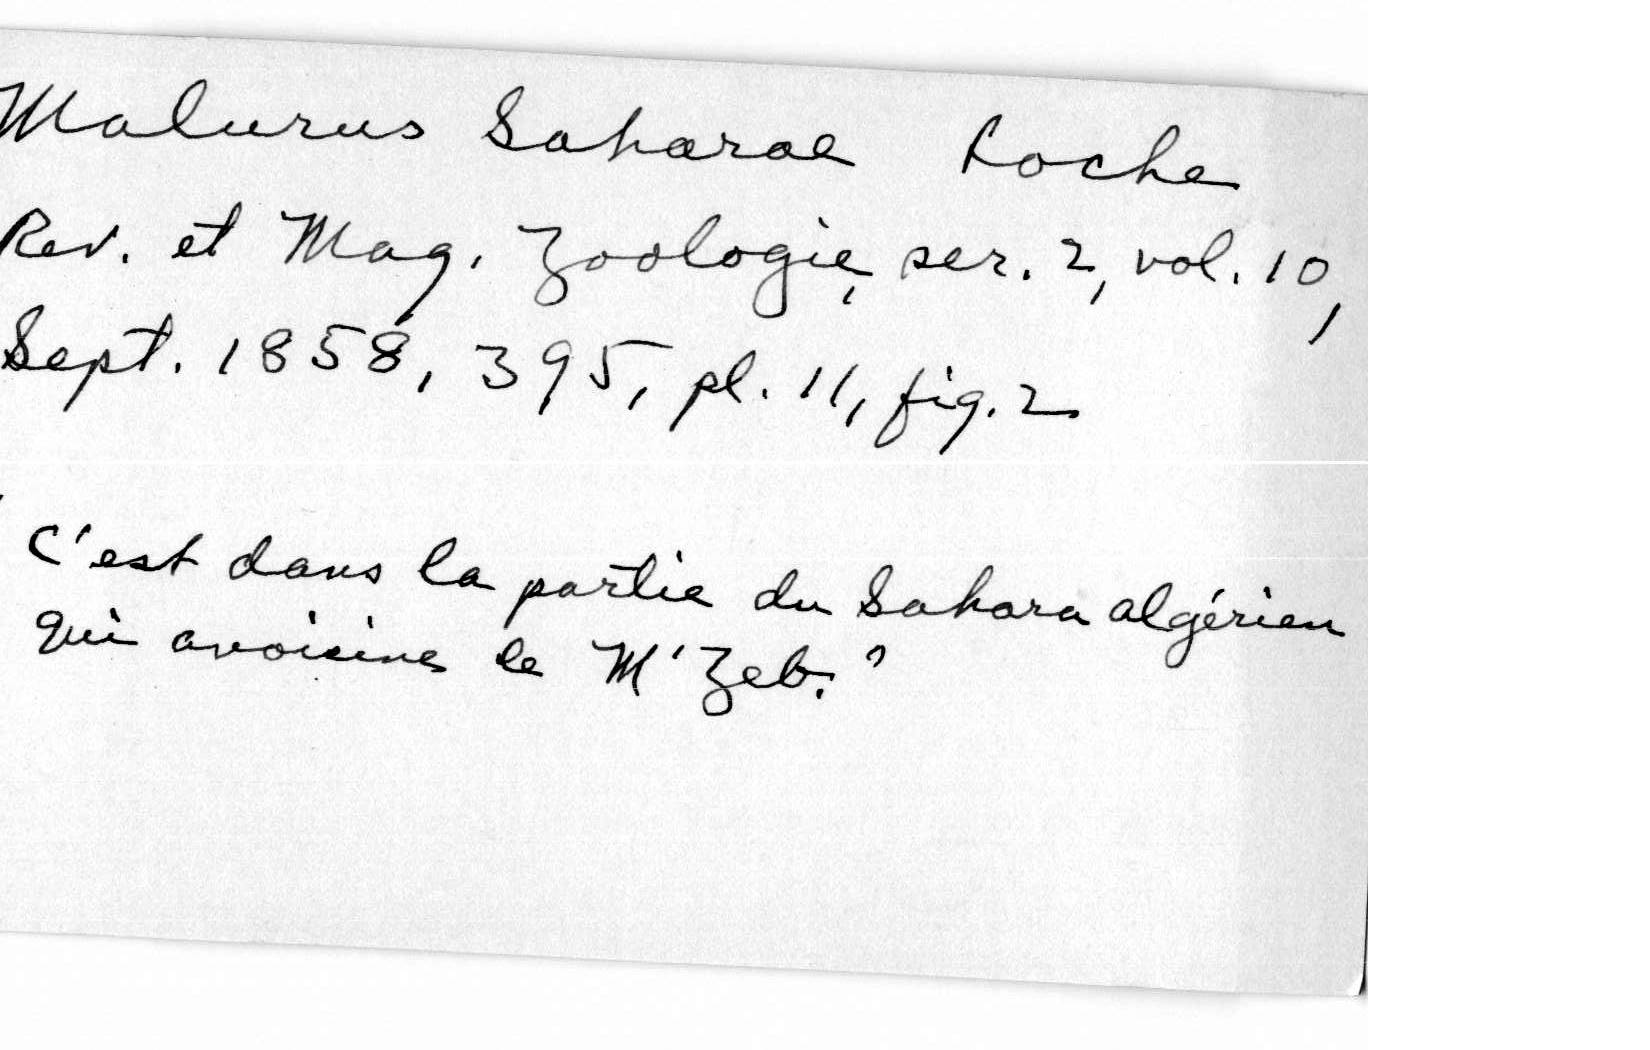 Malurus Saharae Loche
Rev. et Mag. Zoologie, ser. 2, vol. 10,
Sept. 1858, 395, pl. 11, fig. 2
"C'est dans la partie du Sahara algérien
qui avoisine le M'Zeb."